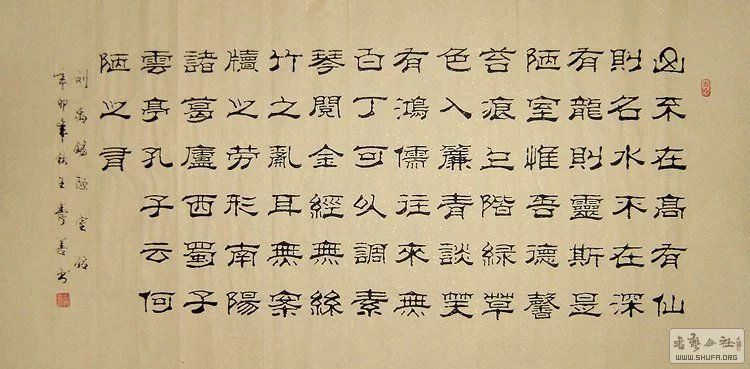 山不在高有仙
則名水不在深
有龍則靈斯是
陋室惟吾德馨
苔痕上階緑草
色入簾青談笑
有鴻儒往來無
白丁可以調素
琴閱金經無絲
竹之亂耳無案
牘之勞形南陽
諸葛廬西蜀子
雲亭孔子云何
陋之有
刘禹錫陋室銘
辛卯年秋王壽善书
书艺公社
WWW.SHUFA.ORG